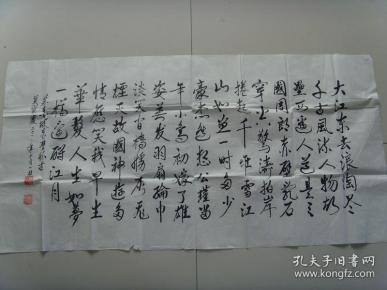 大江东去浪淘尽
千古风流人物故
垒西边人道是三
國周郎赤壁乱石
穿空惊涛拍岸
捲起千堆雪江
山如画一时多少
豪杰遥想公瑾当
年小乔初嫁了雄
姿英发羽扇纶巾
淡笑间樯橹灰飞
煙灭故國神遊多
情应笑我早生
華髮人生如夢
一樽还酹江月
孔夫子旧书网